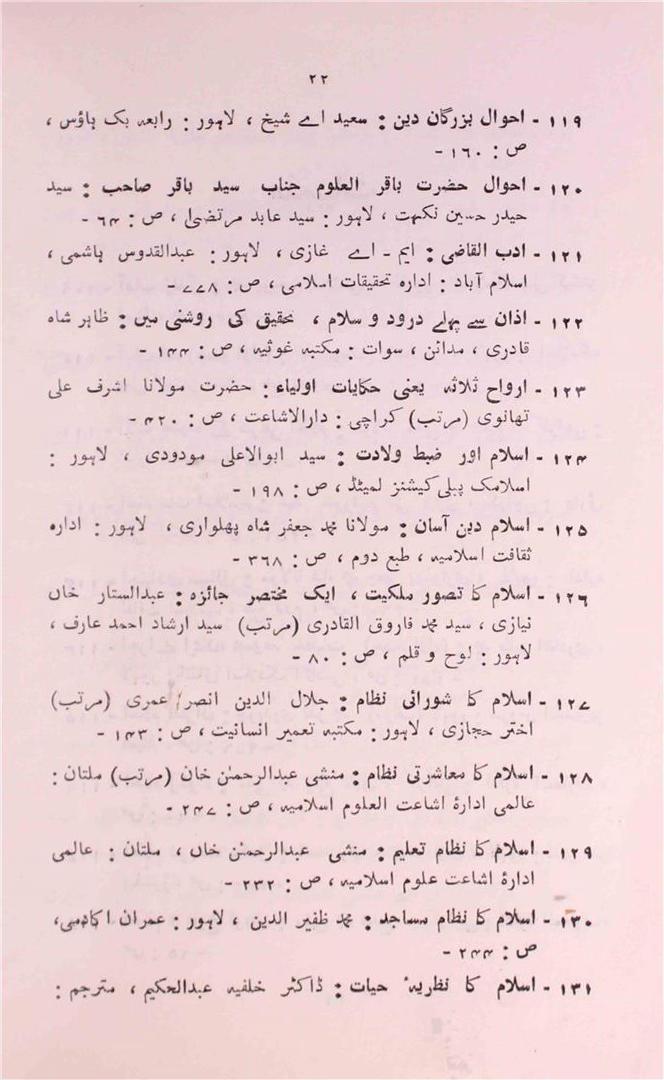 ۲۲
۱۱۹ - احوال بزرگان دین : سعید اے شیخ ، لاہور : رابعہ بک ہاؤس ،
ص : ۱۶۰ -
۱۲۰ - احوال حضرت باقر العلوم جناب سید باقر صاحب : سید
حیدر حسین نکہت ، لاہور : سید عابد مرتضیٰ ، ص : ۶۴ -
۱۲۱ - ادب القاضی : ایم - اے غازی ، لاہور : عبدالقدوس ہاشمی ،
اسلام آباد : ادارہ تحقیقات اسلامی ، ص : ۷۷۸ -
۱۲۲ - اذان سے پہلے درود و سلام ، تحقیق کی روشنی میں : ظاہر شاہ
قادری ، مدائن ، سوات : مکتبہ غوثیہ ، ص : ۱۴۴ -
۱۲۳ - ارواح ثلاثہ یعنی حکایات اولیاء : حضرت مولانا اشرف علی
تھانوی (مرتب) کراچی : دارالاشاعت ، ص : ۴۲۰ -
۱۲۴ - اسلام اور ضبط ولادت : سید ابوالاعلی مودودی ، لاہور :
اسلامک پبلی کیشنز لمیٹڈ ، ص : ۱۹۸ -
۱۲۵ - اسلام دین آسان : مولانا محمد جعفر شاہ پھلواری ، لاہور : ادارہ
ثقافت اسلامیہ ، طبع دوم ، ص : ۳۶۸ -
۱۲۶ - اسلام کا تصور ملکیت ، ایک مختصر جائزہ : عبدالستار خاں
نیازی ، سید محمد فاروق القادری (مرتب) سید ارشاد احمد عارف ،
لاہور : لوح و قلم ، ص : ۸۰ -
۱۲۷ - اسلام کا شورائی نظام : جلال الدین انصر عمری (مرتب)
اختر حجازی ، لاہور : مکتبہ تعمیر انسانیت ، ص : ۱۴۳ -
۱۲۸ - اسلام کا معاشرتی نظام : منشی عبدالرحمٰن خان (مرتب) ملتان :
عالمی ادارۂ اشاعت العلوم اسلامیہ ، ص : ۲۴۷ -
۱۲۹ - اسلام کا نظام تعلیم : منشی عبدالرحمٰن خاں ، ملتان : عالمی
ادارۂ اشاعت علوم اسلامیہ ، ص : ۲۳۲ -
۱۳۰ - اسلام کا نظام مساجد : محمد ظفیر الدین ، لاہور : عمران اکادمی،
ص : ۲۴۴ -
۱۳۱ - اسلام کا نظریۂ حیات : ڈاکٹر خلفیہ عبدالحکیم ، مترجم :